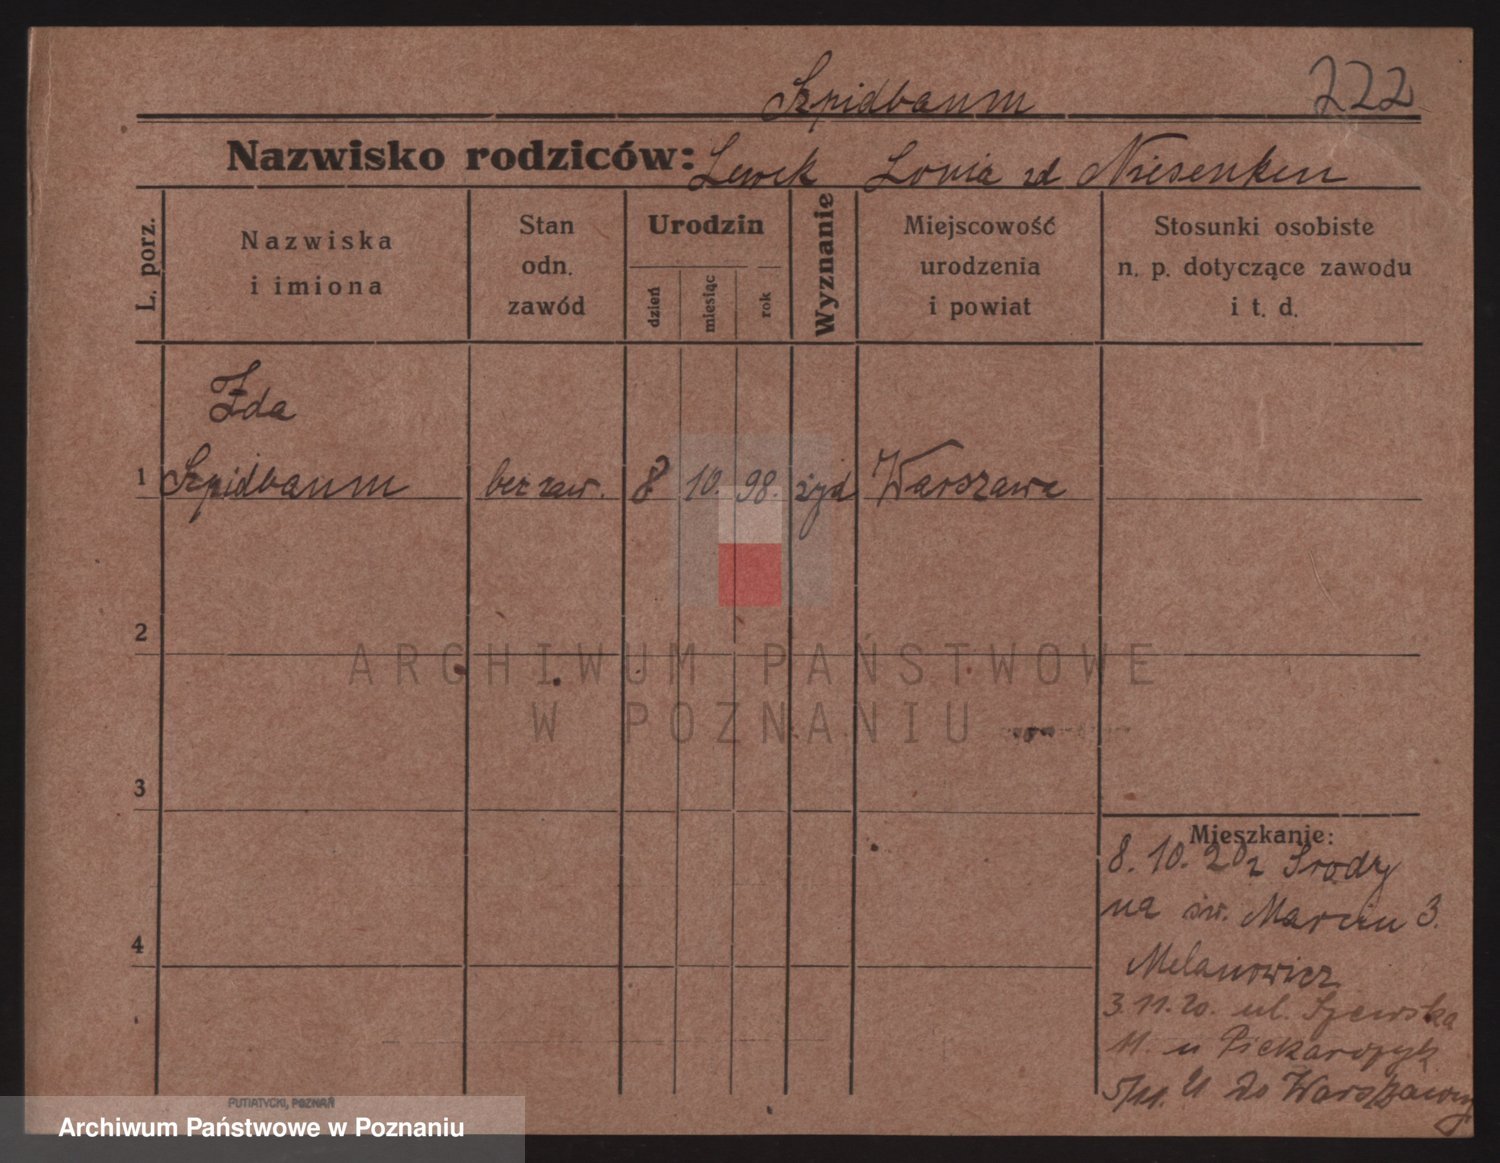 Szpidbaum 222
Nazwisko rodziców: Lewek Lonia zd Niesenken
L. porz.
Nazwiska
i imiona
Stan
odn.
zawód
Urodzin
dzień
miesiąc
rok
Wyznanie
Miejscowość
urodzenia
i powiat
Stosunki osobiste
n. p. dotyczące zawodu
i t. d.
Ida
1 Szpidbaum bez zaw. 8 10. 98. żyd Warszawa
2
ARCHIWUM PAŃSTWOWE
W POZNANIU
3
Mieszkanie:
8. 10. 20 z Środy
na św. Marcin 3.
4
Melanowicz
3.11.20. ul. Szewska
11. u Piekarczyk
5/11. 21 do Warszawy
PUTIATYCKI, POZNAŃ
Archiwum Państwowe w Poznaniu